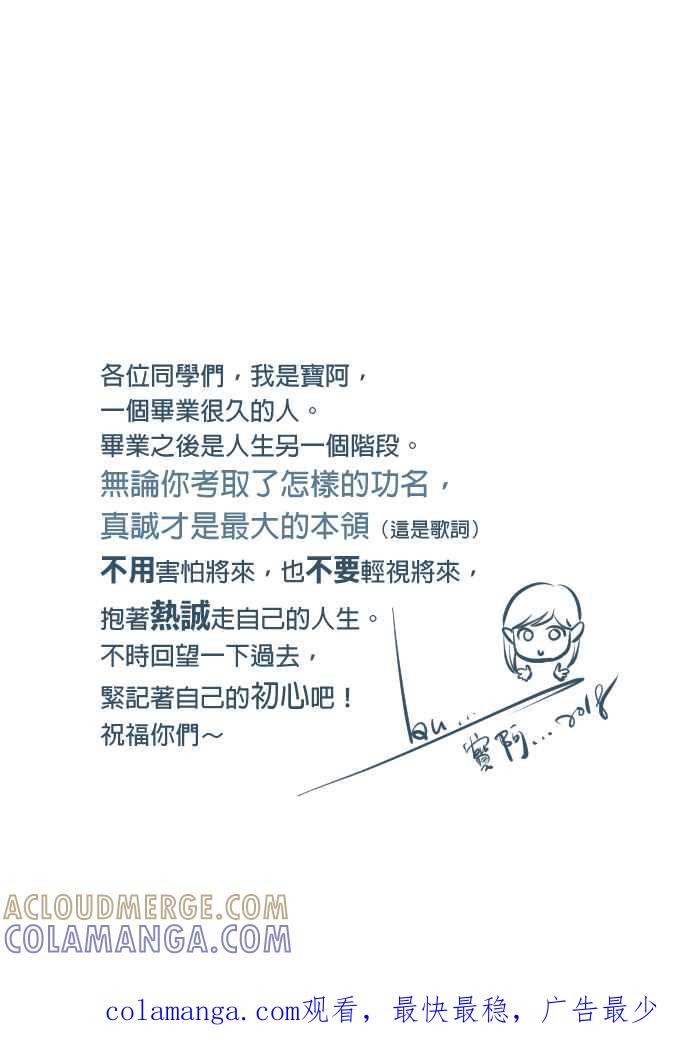 各位同學們，我是寶阿，
一個畢業很久的人。
畢業之後是人生另一個階段。
無論你考取了怎樣的功名，
真誠才是最大的本領（這是歌詞）
不用害怕將來，也不要輕視將來，
抱著熱誠走自己的人生。
不時回望一下過去，
緊記著自己的初心吧！
祝福你們～
寶阿...2018
ACLOUDMERGE.COM
COLAMANGA.COM
colamanga.com观看，最快最稳，广告最少